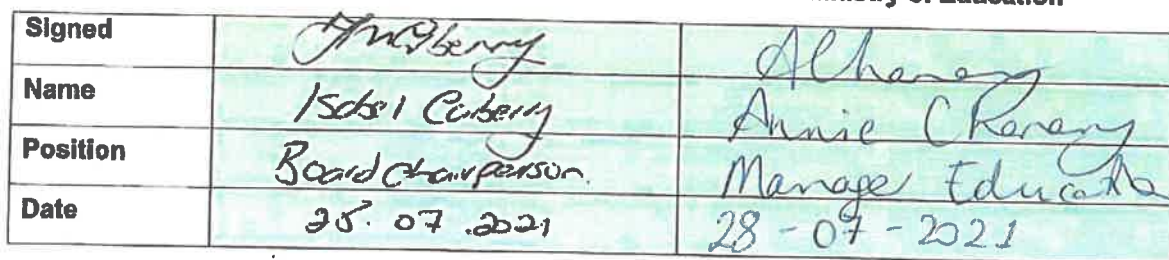 of Education
Signed
Name Isobel Carberry Annie C
Position Board Chairperson. Manager Education
Date 25. 07 .2021 28 - 07 - 2021